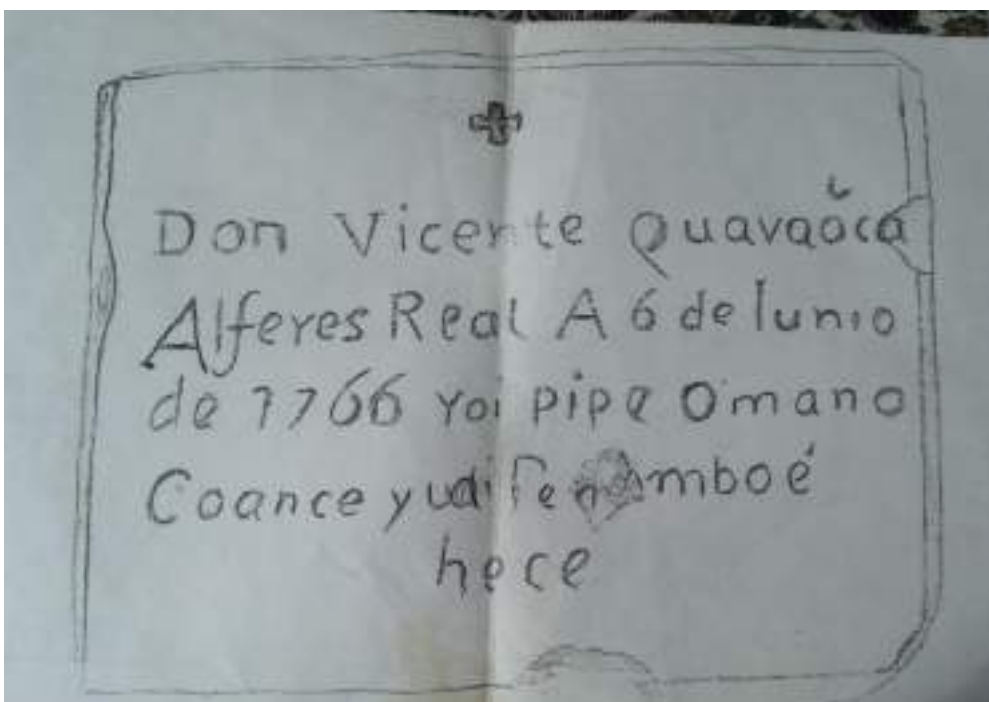 Don Vicente Quavaŏca
Alferes Real A 6 de Iunio
de 1766 Yoi pipe Omano
Coance yudi amboé
hece